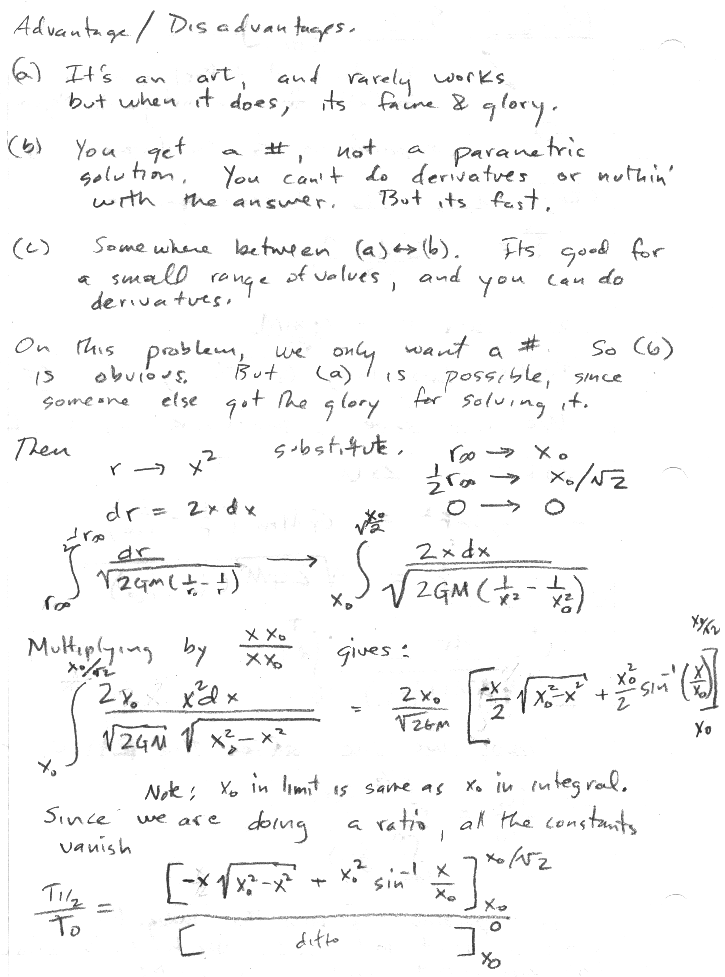 Advantage / Disadvantages.
(a) It's an art, and rarely works
but when it does, its fame & glory.
(b) You get a #, not a parametric
solution. You can't do derivatves or nuthin'
with the answer. But its fast.
(c) Somewhere between (a)↔(b). Its good for
a small range of values, and you can do
derivatves.
On this problem, we only want a #. So (b)
is obvious. But (a) is possible, since
someone else got the glory for solving it.
Then r → x² substitute. r∞ → x₀
½r∞ → x₀/√2
dr = 2x dx 0 → 0
∫_{r∞}^{½r∞} dr / √(2GM(1/r - 1/r)) → ∫_{x₀}^{x₀/√2} 2x dx / √(2GM(1/x² - 1/x₀²))
Multiplying by x x₀ / x x₀ gives:
∫_{x₀}^{x₀/√2} 2x₀ x² dx / (√2GM √(x₀² - x²)) = 2x₀/√2GM [-x/2 √(x₀² - x²) + x₀²/2 sin⁻¹(x/x₀)]_{x₀}^{x₀/√2}
Note: x₀ in limit is same as x₀ in integral.
Since we are doing a ratio, all the constants
vanish
T1/2 / T₀ = [-x √(x₀² - x²) + x₀² sin⁻¹ x/x₀]_{x₀}^{x₀/√2} / [ ditto ]_{x₀}^{0}